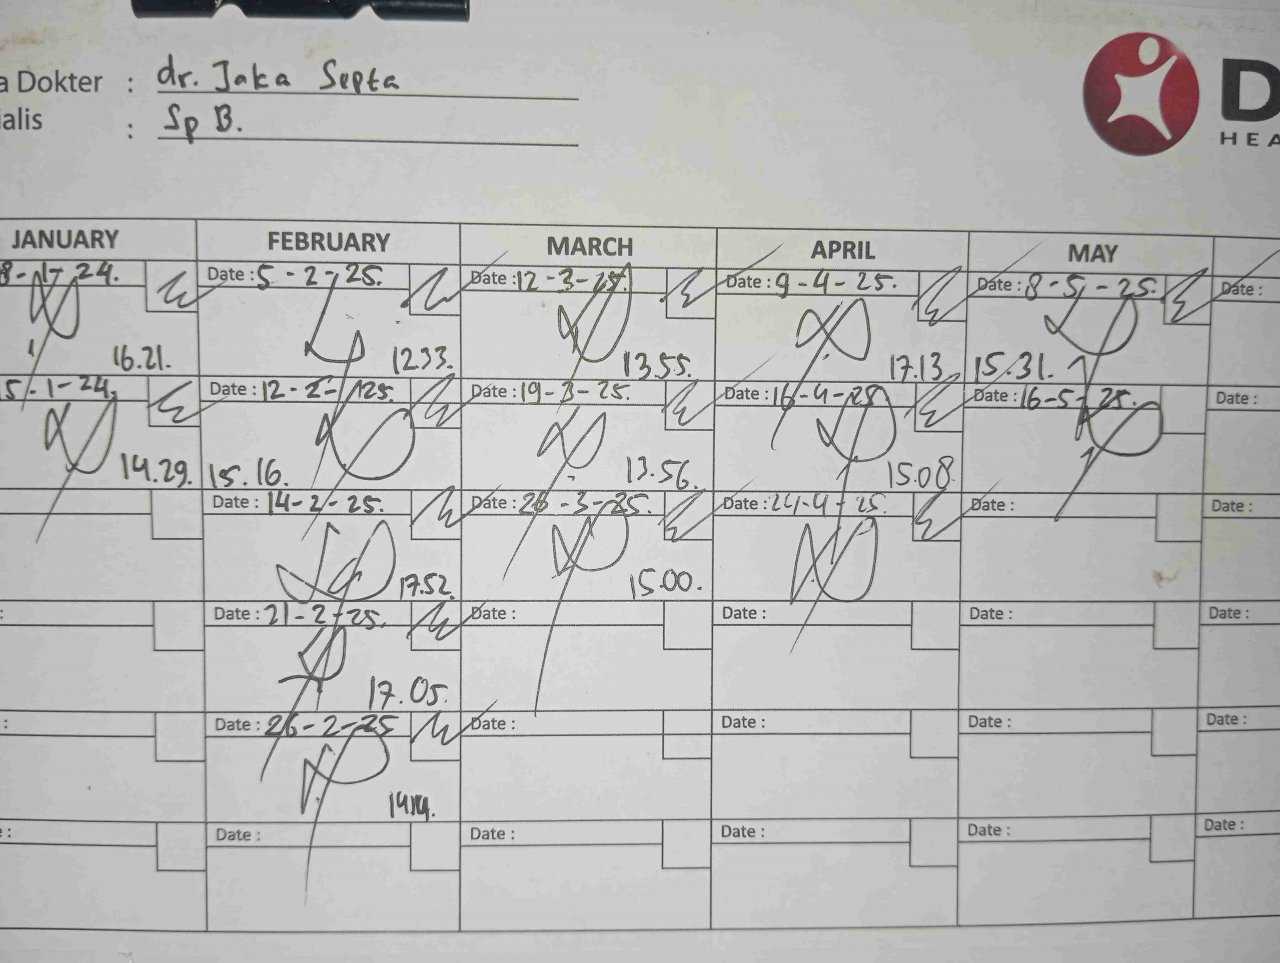 a Dokter : dr. Jaka Septa
ialis : Sp B.
D
HEA
JANUARY FEBRUARY MARCH APRIL MAY
8-1-24. Date : 5-2-25. Date : 12-3-25. Date : 9-4-25. Date : 8-5-25. Date :
16.21. 12.33. 13.55. 17.13 15.31.
5-1-24. Date : 12-2-25. Date : 19-3-25. Date : 16-4-25 Date : 16-5-25. Date :
14.29. 15.16. 13.56. 15.08.
Date : 14-2-25. Date : 26-3-25. Date : 24-4-25. Date : Date :
17.52. 15.00.
: Date : 21-2-25. Date : Date : Date : Date :
17.05.
: Date : 26-2-25 Date : Date : Date : Date :
14.14.
e : Date : Date : Date : Date : Date :